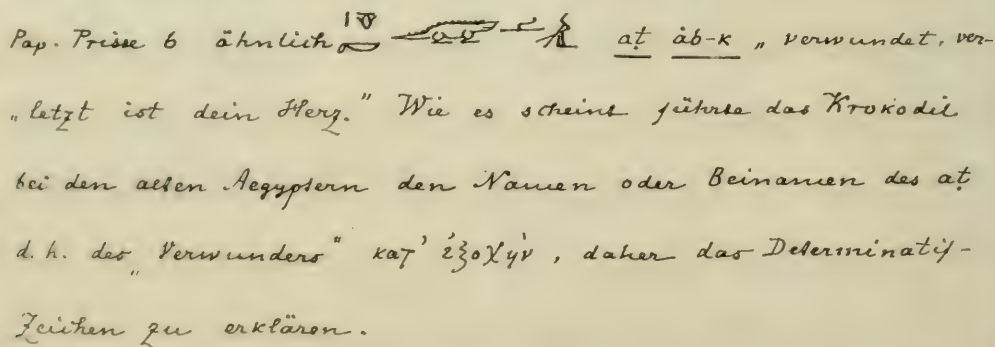 Pap. Prisse 6 ähnlich aṭ åb-k „verwundet, ver-
„letzt ist dein Herz." Wie es scheint führte das Krokodil
bei den alten Aegyptern den Namen oder Beinamen des aṭ
d. h. des „Verwunders" κατ' ἐξοχήν, daher das Determinatif-
Zeichen zu erklären.